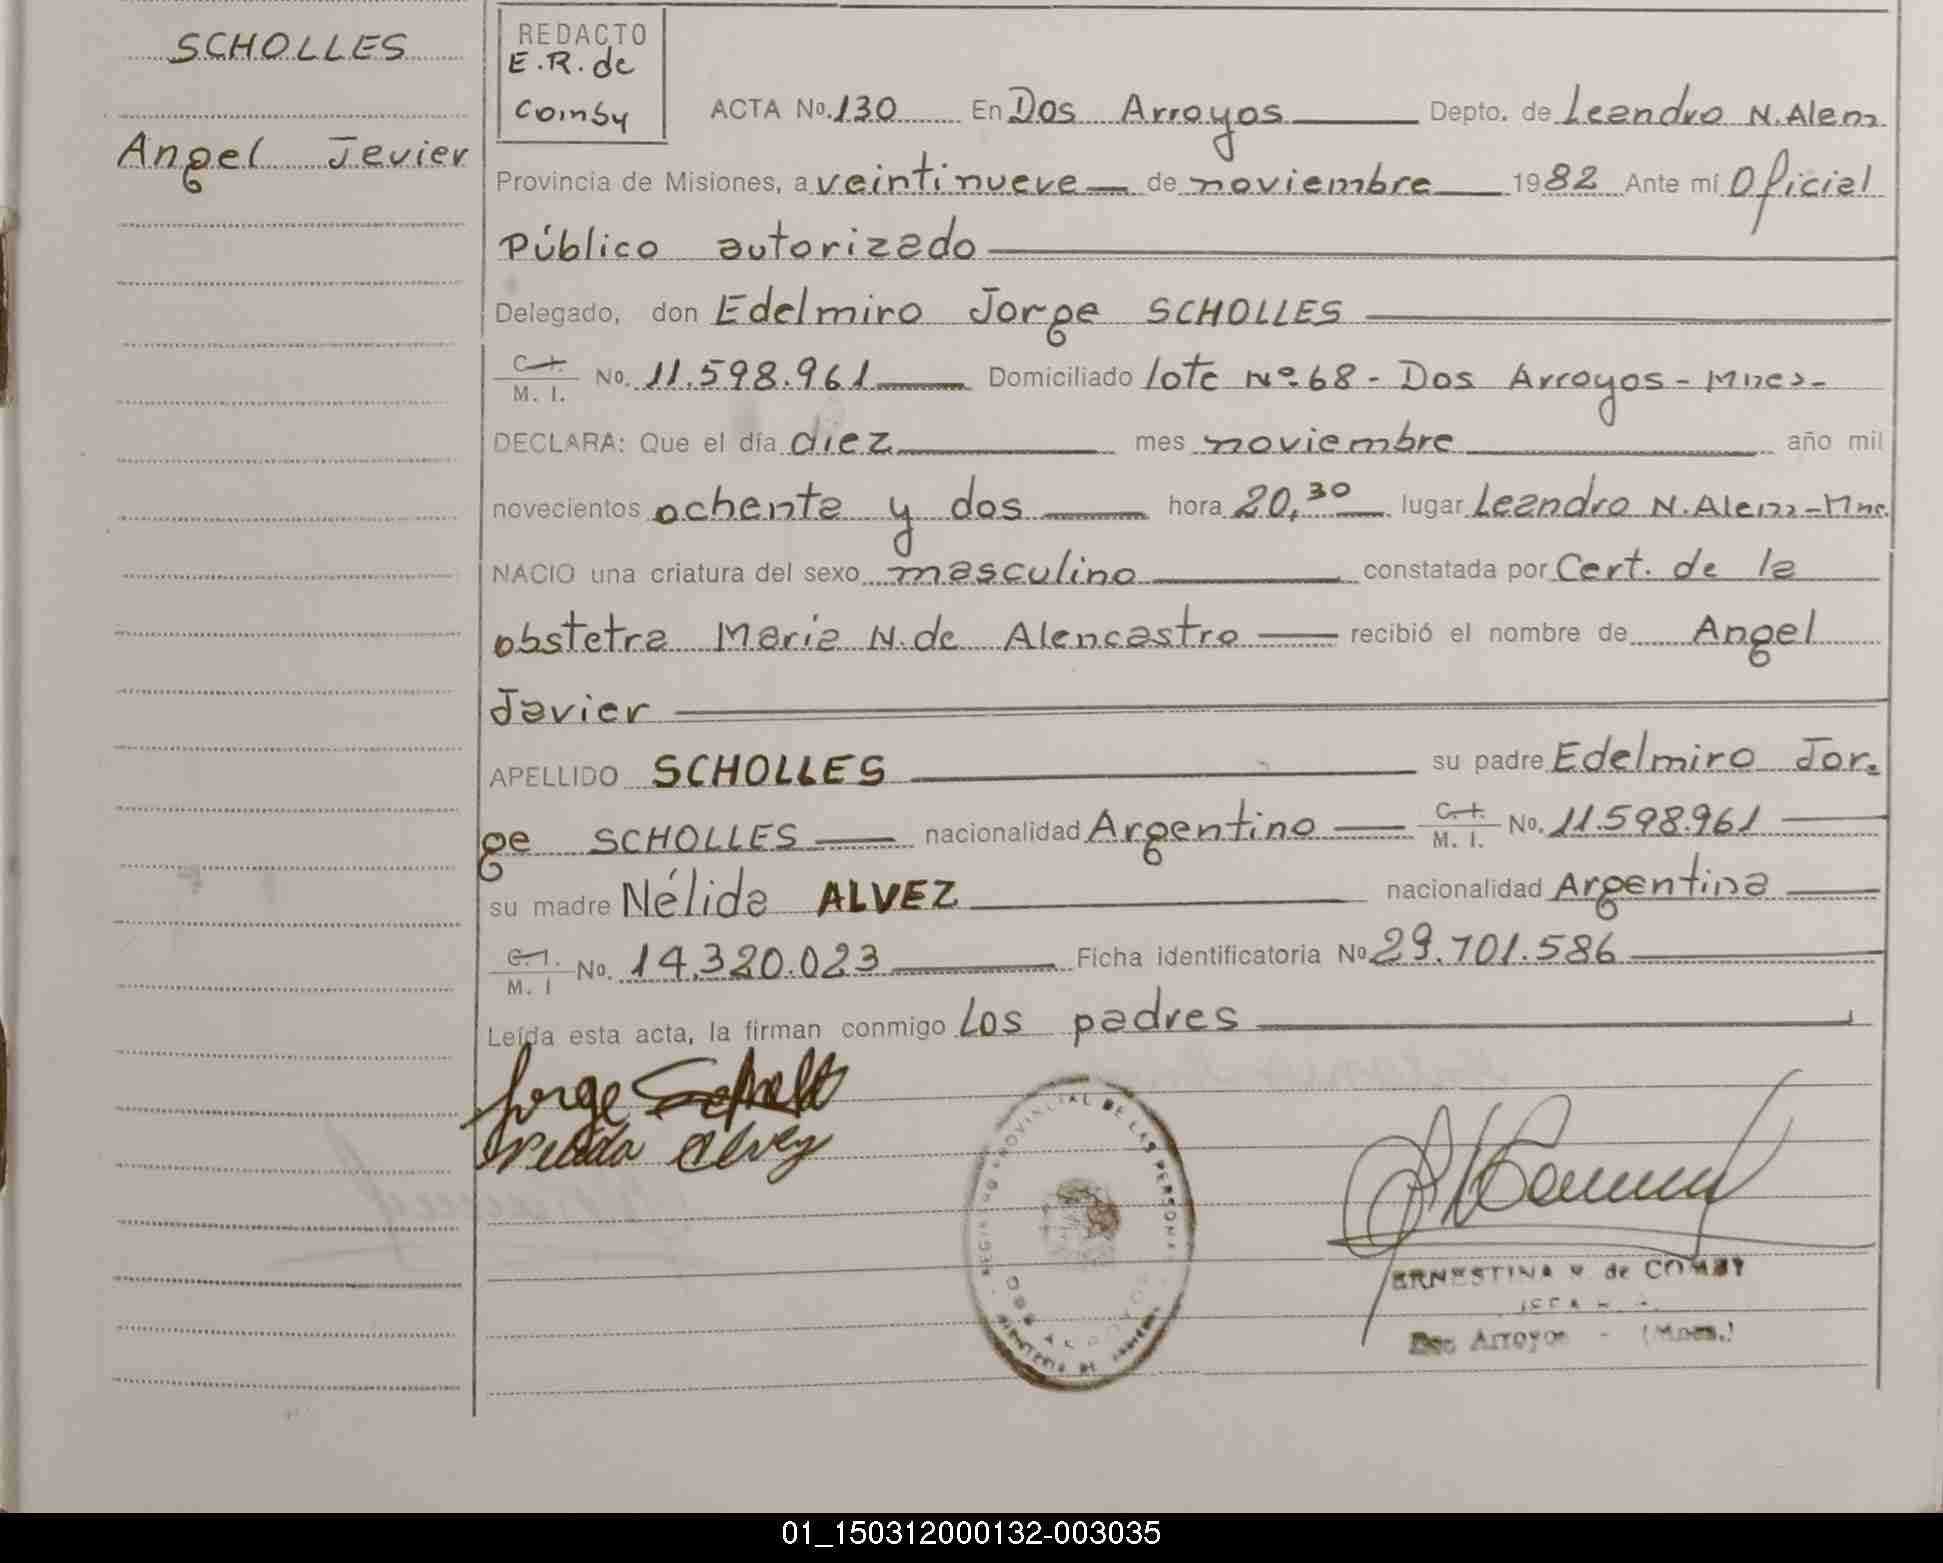 SCHOLLES
Angel Javier
REDACTO
E.R. de
Coimby
ACTA No. 130 En Dos Arroyos Depto. de Leandro N. Alem
Provincia de Misiones, a veintinueve de noviembre 1982 Ante mí Oficial
Público autorizado
Delegado, don Edelmiro Jorge SCHOLLES
C. I.
M. I. No. 11.598.961 Domiciliado lote Nº 68 - Dos Arroyos - Mnes-
DECLARA: Que el día diez mes noviembre año mil
novecientos ochenta y dos hora 20,30 lugar Leandro N. Alem - Mnes.
NACIO una criatura del sexo masculino constatada por Cert. de la
obstetra Maria N. de Alencastro recibió el nombre de Angel
Javier
APELLIDO SCHOLLES su padre Edelmiro Jor-
ge SCHOLLES nacionalidad Argentino C. I.
M. I. No. 11.598.961
su madre Nélida ALVEZ nacionalidad Argentina
C. I.
M. I No. 14.320.023 Ficha identificatoria No 29.701.586
Leída esta acta, la firman conmigo Los padres
Jorge
Nelida Alvez
REGISTRO PROVINCIAL DE LAS PERSONAS
DOS ARROYOS
ERNESTINA de COIMBY
Dos Arroyos - (Mnes.)
01_150312000132-003035